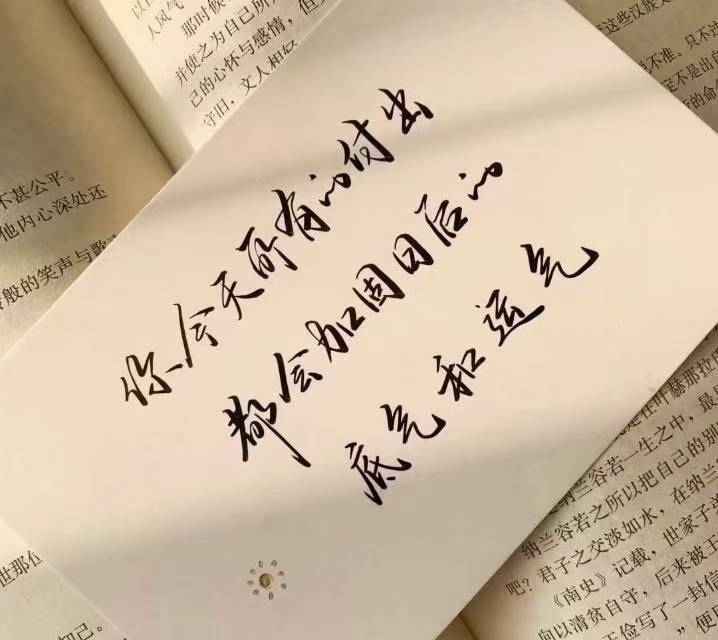 人风气
那时候
并使之为自己所
己的心怀与感情，但
守旧，文人相轻
这些汉族文
不甚公平。
他内心深处还
般的笑声与歌
你今天所有的付出
都会加固日后的
底气和运气
是在叶赫那拉
纳兰容若一生之中，最
纳兰容若之所以把自己的别
吧？君子之交淡如水，在纳兰
《南史》记载，世家子弟
以清贫自守，后来被王
俭写了一封信
世那
知己。